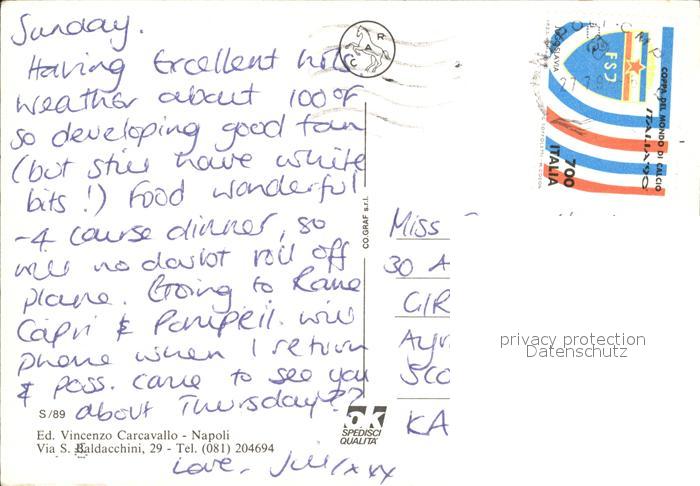 Sunday.
Having Excellent hot
weather about 100°F
so developing good tan
(but still have white
bits!) Food wonderful
-4 course dinner, so
will no doubt roll off
plane. Going to Rome
Capri & Pompeii. will
phone when I return
& poss. come to see you
about Thursday??
Love, Jill xxx
S/89
Ed. Vincenzo Carcavallo - Napoli
Via S. Baldacchini, 29 - Tel. (081) 204694
CO.GRAF s.r.l.
RAC
ok
SPEDISCI
QUALITÀ
JUGOSLAVIA
FSJ
COPPA DEL MONDO DI CALCIO
ITALIA '90
700
ITALIA
Miss
30 A
GIR
Ayr
Sco
KA
privacy protection
Datenschutz